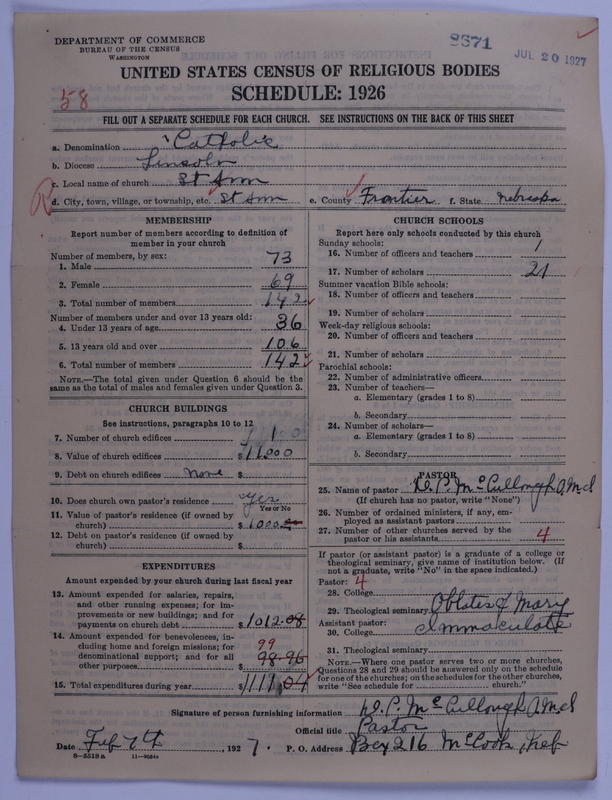 DEPARTMENT OF COMMERCE
BUREAU OF THE CENSUS
WASHINGTON
8671
JUL 20 1927
UNITED STATES CENSUS OF RELIGIOUS BODIES
SCHEDULE: 1926
58
FILL OUT A SEPARATE SCHEDULE FOR EACH CHURCH. SEE INSTRUCTIONS ON THE BACK OF THIS SHEET
a. Denomination Catholic
b. Diocese Lincoln
c. Local name of church St Ann
R
d. City, town, village, or township, etc. St Ann e. County Frontier f. State Nebraska
MEMBERSHIP
Report number of members according to definition of
member in your church
Number of members, by sex:
1. Male 73
2. Female 69
3. Total number of members 142
Number of members under and over 13 years old:
4. Under 13 years of age 36
5. 13 years old and over 106
6. Total number of members 142
NOTE.—The total given under Question 6 should be the
same as the total of males and females given under Question 3.
CHURCH BUILDINGS
See instructions, paragraphs 10 to 12
7. Number of church edifices 1
8. Value of church edifices $ 11000
9. Debt on church edifices None $
10. Does church own pastor's residence yes
Yes or No
11. Value of pastor's residence (if owned by
church) $ 1000
12. Debt on pastor's residence (if owned by
church) $
EXPENDITURES
Amount expended by your church during last fiscal year
13. Amount expended for salaries, repairs,
and other running expenses; for im-
provements or new buildings; and for
payments on church debt $ 1012.08
14. Amount expended for benevolences, in-
cluding home and foreign missions; for 99
denominational support; and for all 98.96
other purposes
15. Total expenditures during year $ 1111.04
CHURCH SCHOOLS
Report here only schools conducted by this church
Sunday schools:
16. Number of officers and teachers 1
17. Number of scholars 21
Summer vacation Bible schools:
18. Number of officers and teachers
19. Number of scholars
Week-day religious schools:
20. Number of officers and teachers
21. Number of scholars
Parochial schools:
22. Number of administrative officers
23. Number of teachers—
a. Elementary (grades 1 to 8)
b. Secondary
24. Number of scholars—
a. Elementary (grades 1 to 8)
b. Secondary
PASTOR
25. Name of pastor D. P. McCullough O.M.I
(If church has no pastor, write "None")
26. Number of ordained ministers, if any, em-
ployed as assistant pastors
27. Number of other churches served by the
pastor or his assistants 4
If pastor (or assistant pastor) is a graduate of a college or
theological seminary, give name of institution below. (If
not a graduate, write "No" in the space indicated.)
Pastor: 4
28. College
29. Theological seminary Oblates of Mary
Assistant pastor:
30. College Immaculate
31. Theological seminary
NOTE.—Where one pastor serves two or more churches,
Questions 28 and 29 should be answered only on the schedule
for one of the churches; on the schedules for the other churches,
write "See schedule for church."
Signature of person furnishing information D. P. McCullough O.M.I
Official title Pastor
Date Feb 7th, 1927. P. O. Address Box 216 McCook, Neb
8-5518a 11-9524a